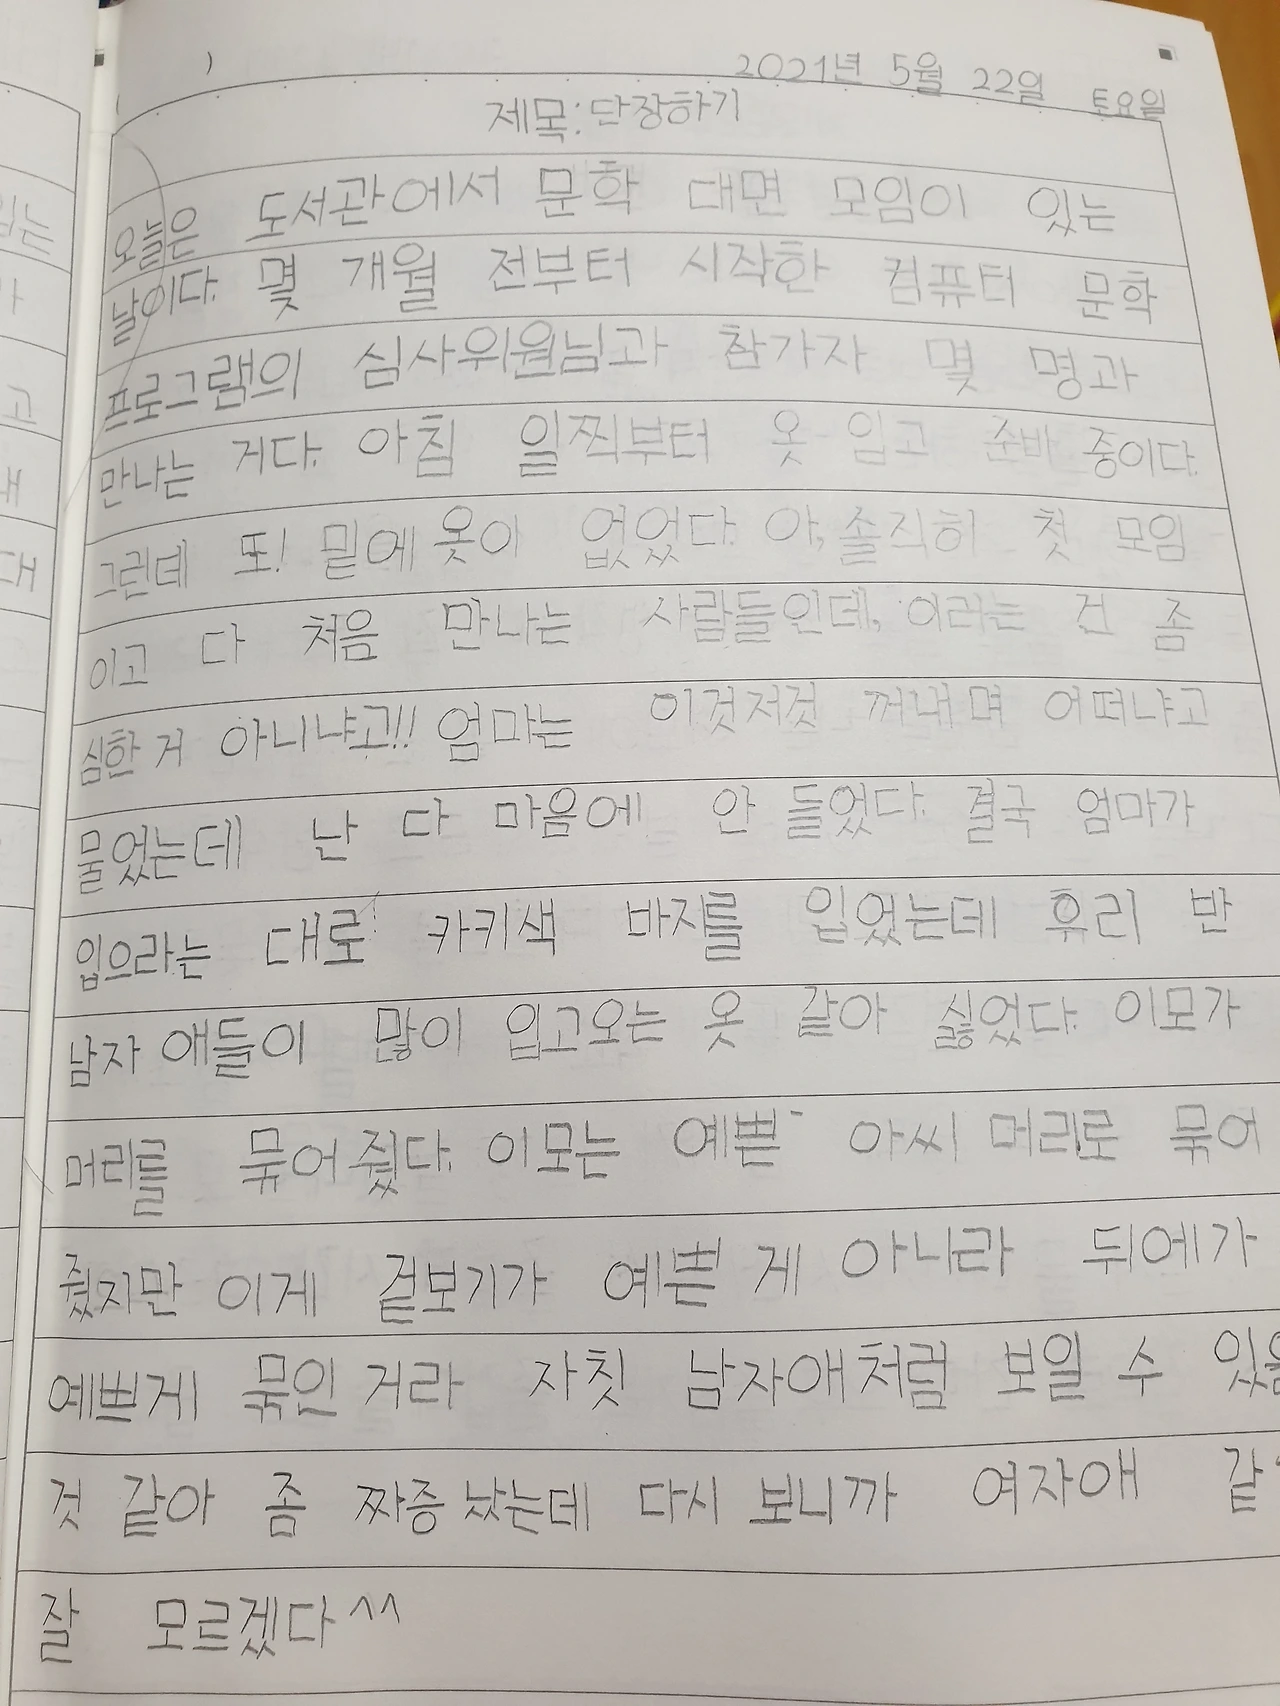 2021년 5월 22일 토요일
제목: 단장하기
오늘은 도서관에서 문학 대면 모임이 있는
날이다. 몇 개월 전부터 시작한 컴퓨터 문학
프로그램의 심사위원님과 참가자 몇 명과
만나는 거다. 아침 일찍부터 옷 입고 준비 중이다.
그린데 또! 밑에 옷이 없었다. 아, 솔직히 첫 모임
이고 다 처음 만나는 사람들인데, 이러는 건 좀
심한 거 아니냐고!! 엄마는 이것저것 꺼내며 어떠냐고
물었는데 난 다 마음에 안 들었다. 결국 엄마가
입으라는 대로 카키색 바지를 입었는데 우리 반
남자 애들이 많이 입고오는 옷 같아 싫었다. 이모가
머리를 묶어 줬다. 이모는 예쁜 아씨 머리로 묶어
줬지만 이게 겉보기가 예쁜 게 아니라 뒤에가
예쁘게 묶인 거라 자칫 남자애처럼 보일 수 있을
것 같아 좀 짜증 났는데 다시 보니까 여자애
잘 모르겠다^^
는
고
대